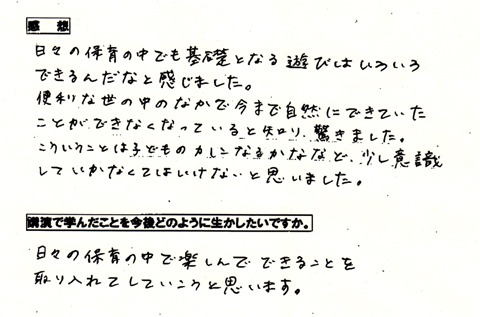 感想
日々の保育の中でも基礎となる遊びはいろいろ
できるんだなと感じました。
便利な世の中のなかで今まで自然にできていた
ことができなくなっていると知り、驚きました。
こういうことは子どもの力になるかななど、少し意識
していかなくてはいけないと思いました。
講演で学んだことを今後どのように生かしたいですか。
日々の保育の中で楽しんでできることを
取り入れてしていこうと思います。